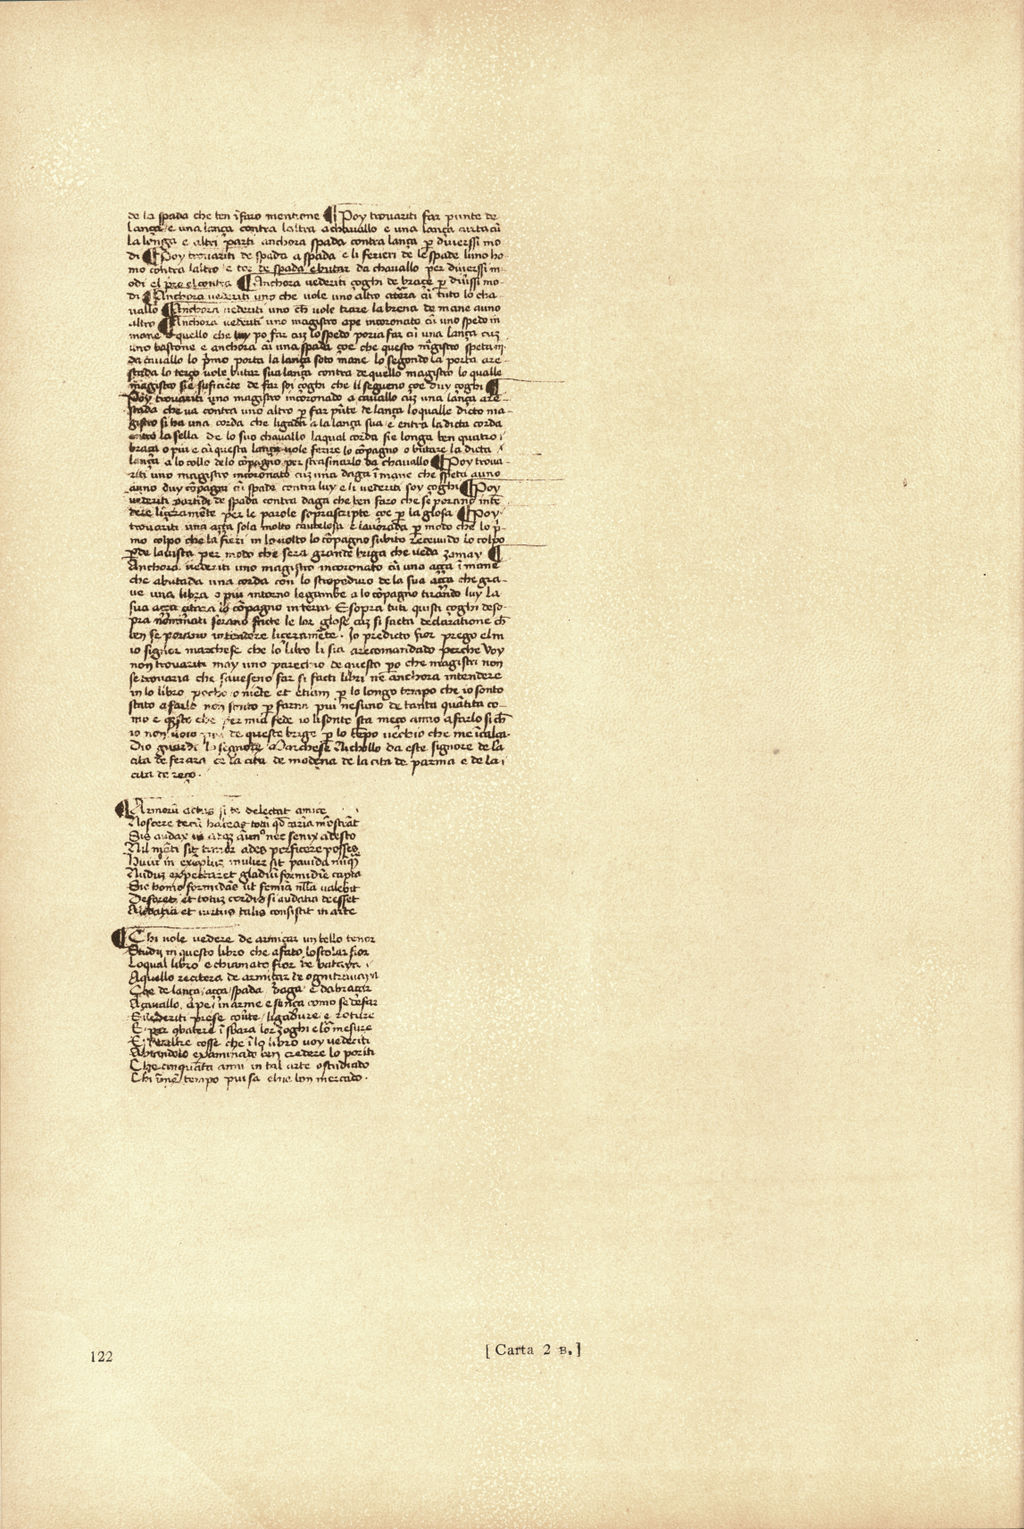 de la spada che ben i faro mentione ¶ Poy trovariti far punte de
lança e una lança contra laltra a chavallo e una lança curta cū
la lenga e altri parti anchora spada contra lança p̱ diverssi mo
di ¶ Poy trovariti de spada a spada e li ferieri de le spade luno ho-
mo contra laltro e tor de spada e butar da chavallo per diverssi m-
odi el pro el contra ¶ Anchora vederiti çoghi de braçe p̱ dīussi mo-
di ¶ Anchora vederiti uno che vole uno altro atera cū tuto lo cha-
vallo ¶ Anchora vederiti uno ch̄ vole trare la brena de mane a uno
altro ¶ Anchora vederiti uno magistro a pe incoronato cū uno spedo in
mane e quello che luy po far cuz lo spedo poria far cū una lança cuz
uno bastone e anchora cū una spada çoe che questo m̄gistro speta iii
da cavallo lo p̄mo porta la lança soto mane lo segondo la porta are-
stada lo terço vole butar sua lança contra de quello magistro lo qualle
magistro sie suficiēte de far soi çoghi che li segueno çoe duy çoghi ¶
Poy trovariti uno magistro incoronado a cavallo cuz una lança are-
stada che va contra uno altro p̱ far pūte de lança lo qualle dicto ma-
gistro si ha una corda che ligada a la lança sua e entra la dicta corda
entro la sella de lo suo chavallo la qual corda sie longa ben quatro
braça o piu e cū questa lança vole ferire lo cōpagno o butare la dicta
lança a lo collo de lo cōpagno per strasinarlo da chavallo ¶ Poy trova-
riti uno magistro incoronato cuz una daga ī mane che speta a uno
a uno duy cōpagni cū spade contra luy e li vederiti soy çoghi ¶ Poy
vederiti partide de spada contra daga che ben faro che se porano inte-
dere liçeramēte per le parole soprascripte çoe p̱ la glosa ¶ Poy
trovariti una aça sola molto cautelosa e lavorada p̱ modo che lo p̄-
mo colpo che la fieri in lo volto lo cōpagno subito recevudo lo colpo
p̱de la vista per modo che sera grande briga che veda zamay ¶
Anchora vederiti uno magistro incoronato cū uno aça ī mane
che a butada una corda con lo stropeduro de la sua aça che gra-
ve una libra o piu intorno le gambe a lo cōpagno tirando luy la
sua aça atera lo cōpagno in terra E sopra tuti quisti çoghi deso-
pra nominati serano scritte le lor glose cuz si facta declaratione ch̄
ben se porano intendere liçeramēte. Io predicto fior prego el m
io signor marchese che lo libro li sia arecomandado perche voy
non trovariti may uno parechio de questo po che magistri non
se trovaria che saveseno far si facti libri nē anchora intendere
in lo libro pocho o niēte et etiam p̱ lo longo tempo che io sonto
stato a farlo non sonto p̱ farna piu nesuno de tanta quātita co-
mo e q̄sto che per mia fede io li sonte sta meço anno a farlo si ch̄
io non voio piu de queste brige p̱ lo tēpo vechio che me īcalça
Dio guardi lo segnore Marchese Nichollo da este signore de la
cita de ferara e la cita de modena de la cita de parma e de la
cita de reço.
¶ Armorū actus si te delectat amice
Noscere tecū habeas totū qd̄ caria mōstrāt
Sis audax
Nil mēti sit timor ades perficere posses
Huiu in exēplus mulier sit pavida nūq̄
Nudus expectaret gladiū formidine capta
Sic homo formidās ut femia nlla valebit
Deforet et totuz cordis si audatia deesset
Audatia et virtus talis consistit in arte
¶ Chi vole vedere de armiçar un bello tenor
Studij in questo libro che a fato lo scolar fior
Lo qual libro e chiamato flor de bataya
A quello recitera de armiçar de ogni travaya
Che de lança, aça, spada daga e da braçar
A cavallo, a pe, in arme e sença como se de far
E vederiti prese coūte ligadure e roture
E per q̱batere ī sbara lor zoghi e lor mesure
E le altre cosse che ī lo libro voy vederiti
Abiandolo examinado ben credere lo poriti
Che cinquāta anni in tal arte o studiado
Chi ī mēe tempo piu sa elne bon mercado.
122
[Carta 2 B.]